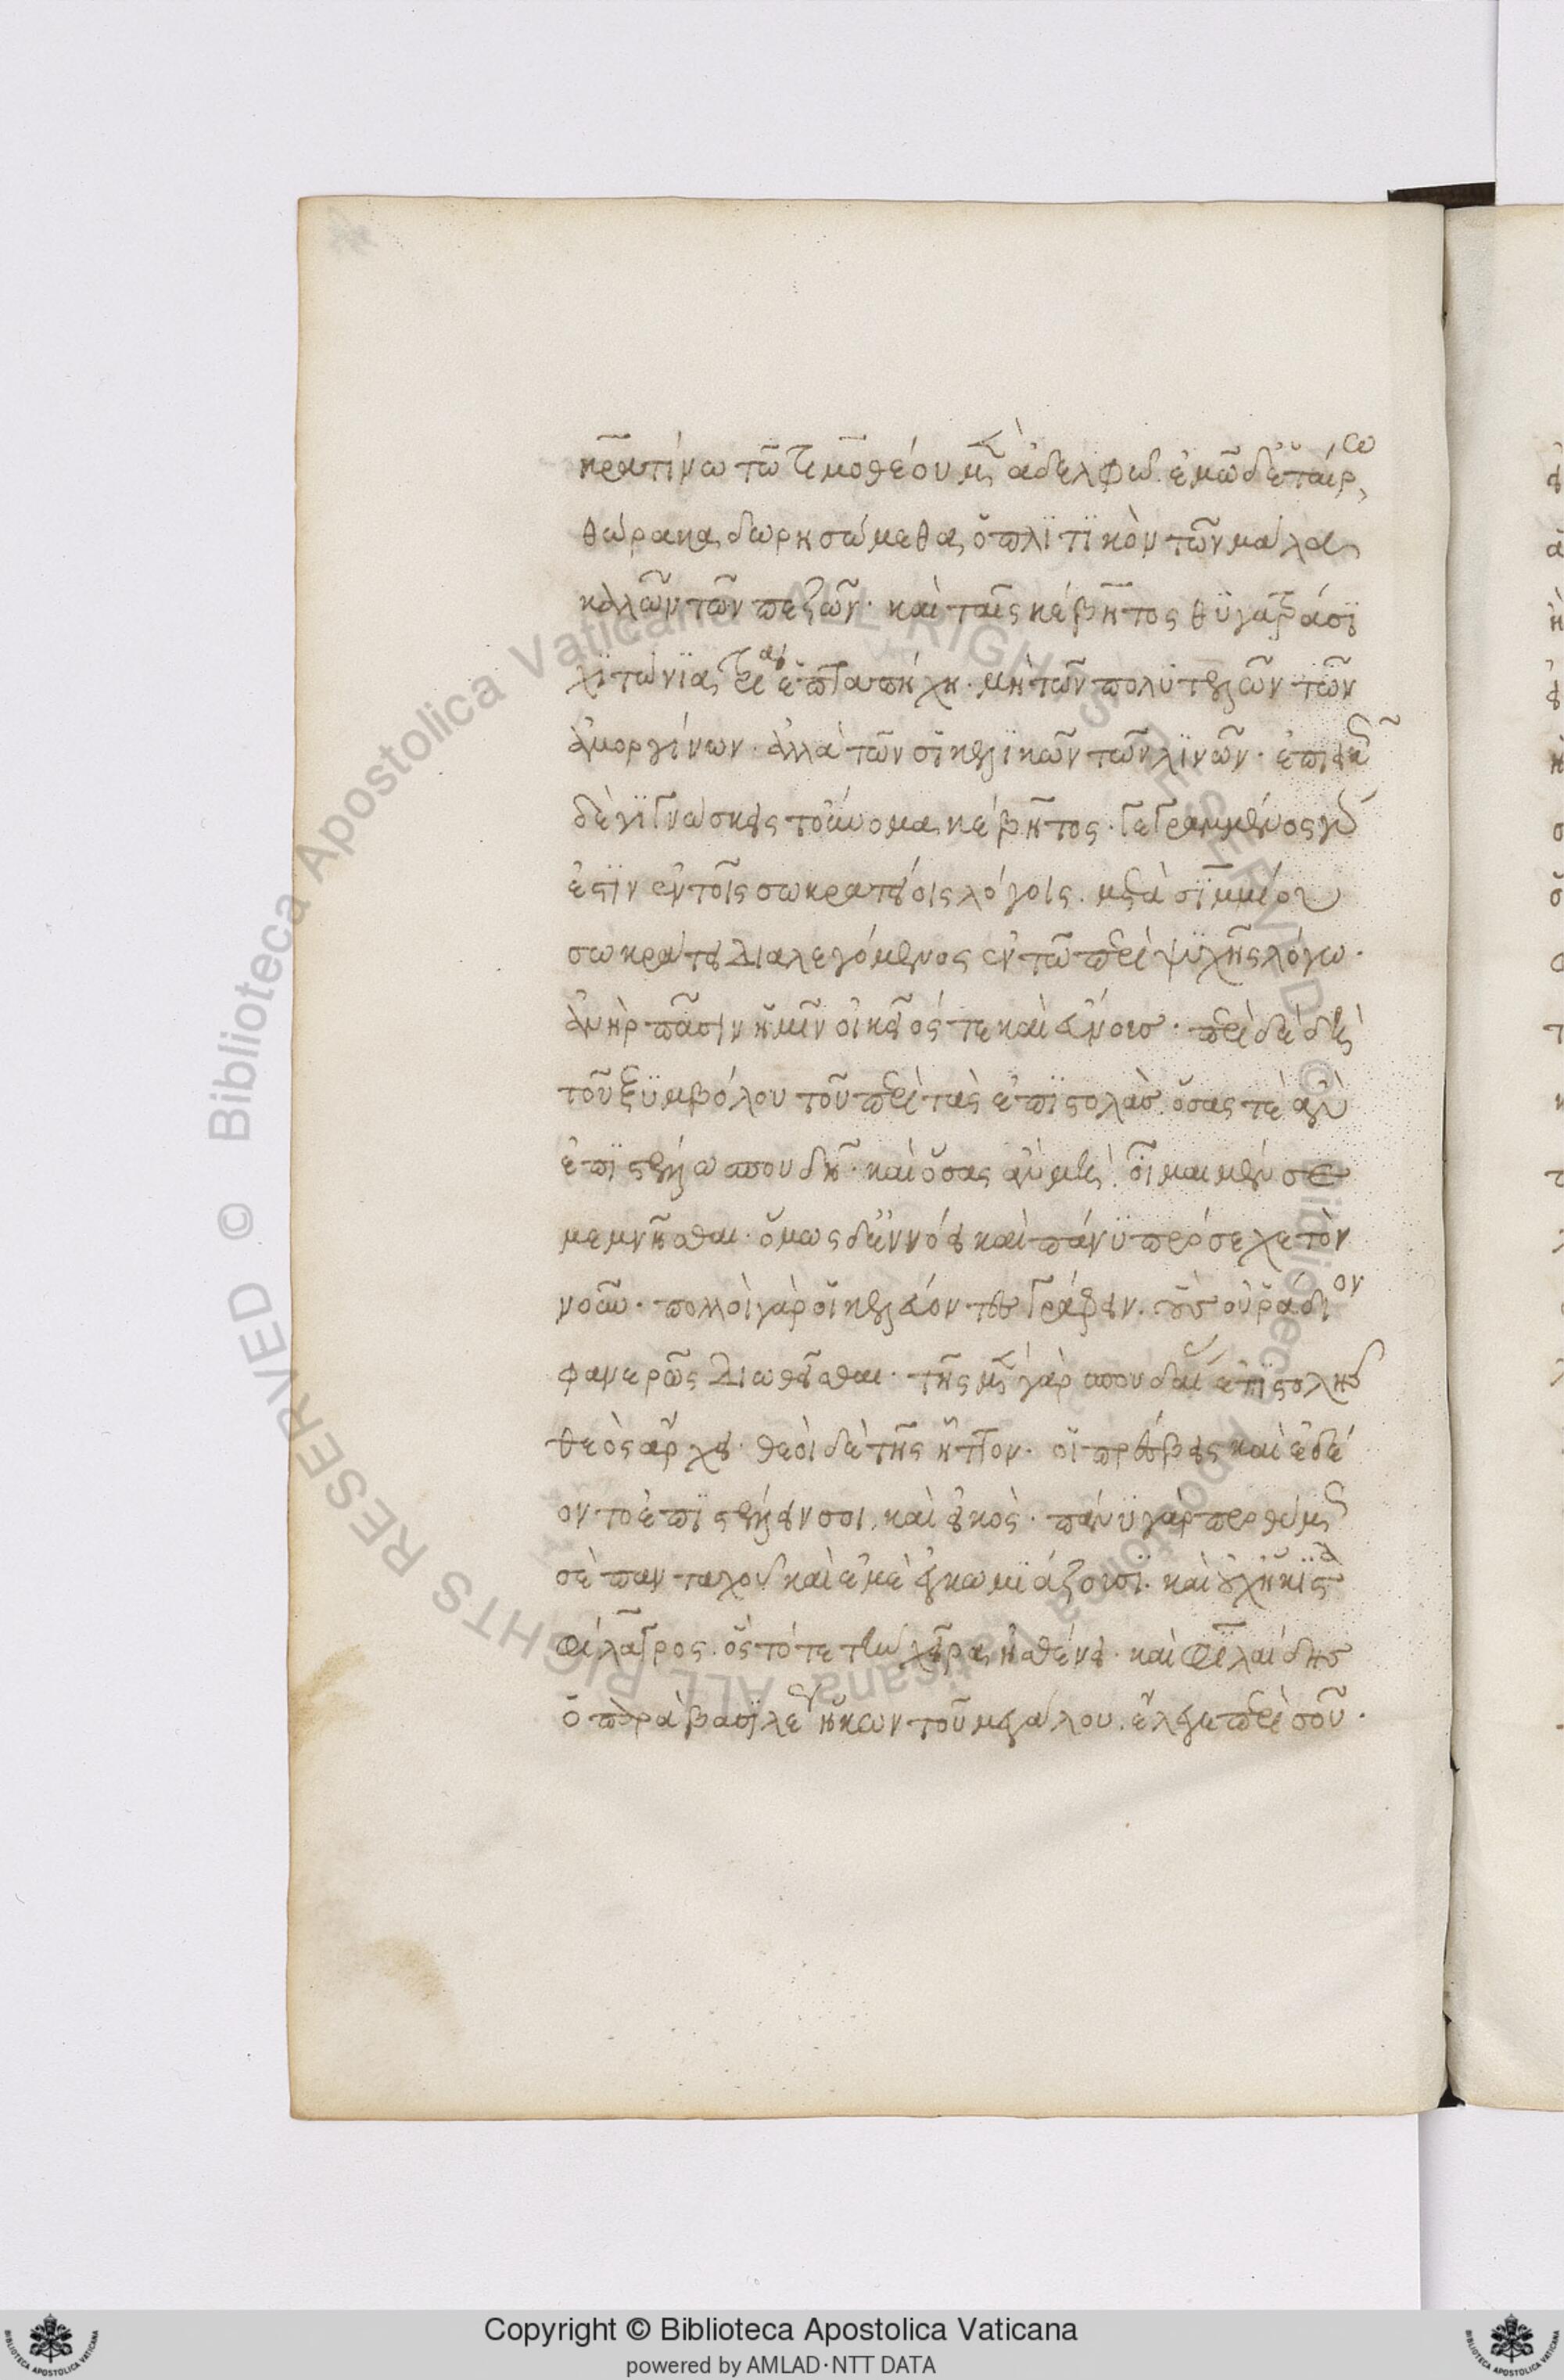 κρατίνω τῶ τιμοθέου μὲν ἀδελφῶ. ἐμῶ δ' ἑταίρω,
θώρακα δωρησώμεθα ὁπλϊτϊκὸν τῶν μάλα
καλῶν τῶν πεζῶν· καὶ ταῖς κέβητος θϋγατράσϊ
χϊτώνϊα τρία ἑπταπήχη· μὴ τῶν πολϋτελῶν τῶν
ἀμοργίνων· ἀλλὰ τῶν σϊκελϊκῶν τῶν λϊνῶν· ἐπιεικῶς
δὲ γϊγνώσκεις τοὔνομα κέβητος· γεγραμμένος γάρ
ἐστϊν ἐν τοῖς σωκρατείοις λόγοις. μετὰ σϊμμίου
σωκράτει διαλεγόμενος ἐν τῶ περὶ ψϋχῆς λόγω·
ἀνὴρ πᾶσιν ἡμῖν οἰκεῖός τε καὶ εὔνους· περὶ δὲ δὴ
τοῦ ξϋμβόλου τοῦ περὶ τὰς ἐπϊστολὰς. ὅσας τὲ ἂν
ἐπϊστέλλω σπουδῆ· καὶ ὅσας ἂν μή. οἶμαι μέν σε
μεμνῆσθαι· ὅμως δ' ἐννόει καὶ πάνϋ πρόσεχε τὸν
νοῦν· πολλοὶ γὰρ οἱ κελεύοντες γράφειν. οὓς οὐ ῥάδιον
φανερῶς διωθεῖσθαι· τῆς μὲν γὰρ σπουδαίας ἐπϊστολῆς
θεὸς ἄρχει· θεοὶ δὲ τῆς ἧττον· οἱ πρέσβεις καὶ ἐδέ
οντο ἐπϊστέλλειν σοι. καὶ εἰκὸς· πάνϋ γὰρ προθύμως
σὲ πανταχοῦ καὶ ἐμὲ ἐγκωμϊάζουσϊ· καὶ οὐχ ἥκϊστα
φίλαγρος. ὃς τότε τὴν χεῖρα ἠσθένει· καὶ φϊλαίδης
ὁ παρὰ βασϊλέως ἥκων τοῦ μεγάλου. ἔλεγε περὶ σοῦ·
Copyright © Biblioteca Apostolica Vaticana
powered by AMLAD·NTT DATA